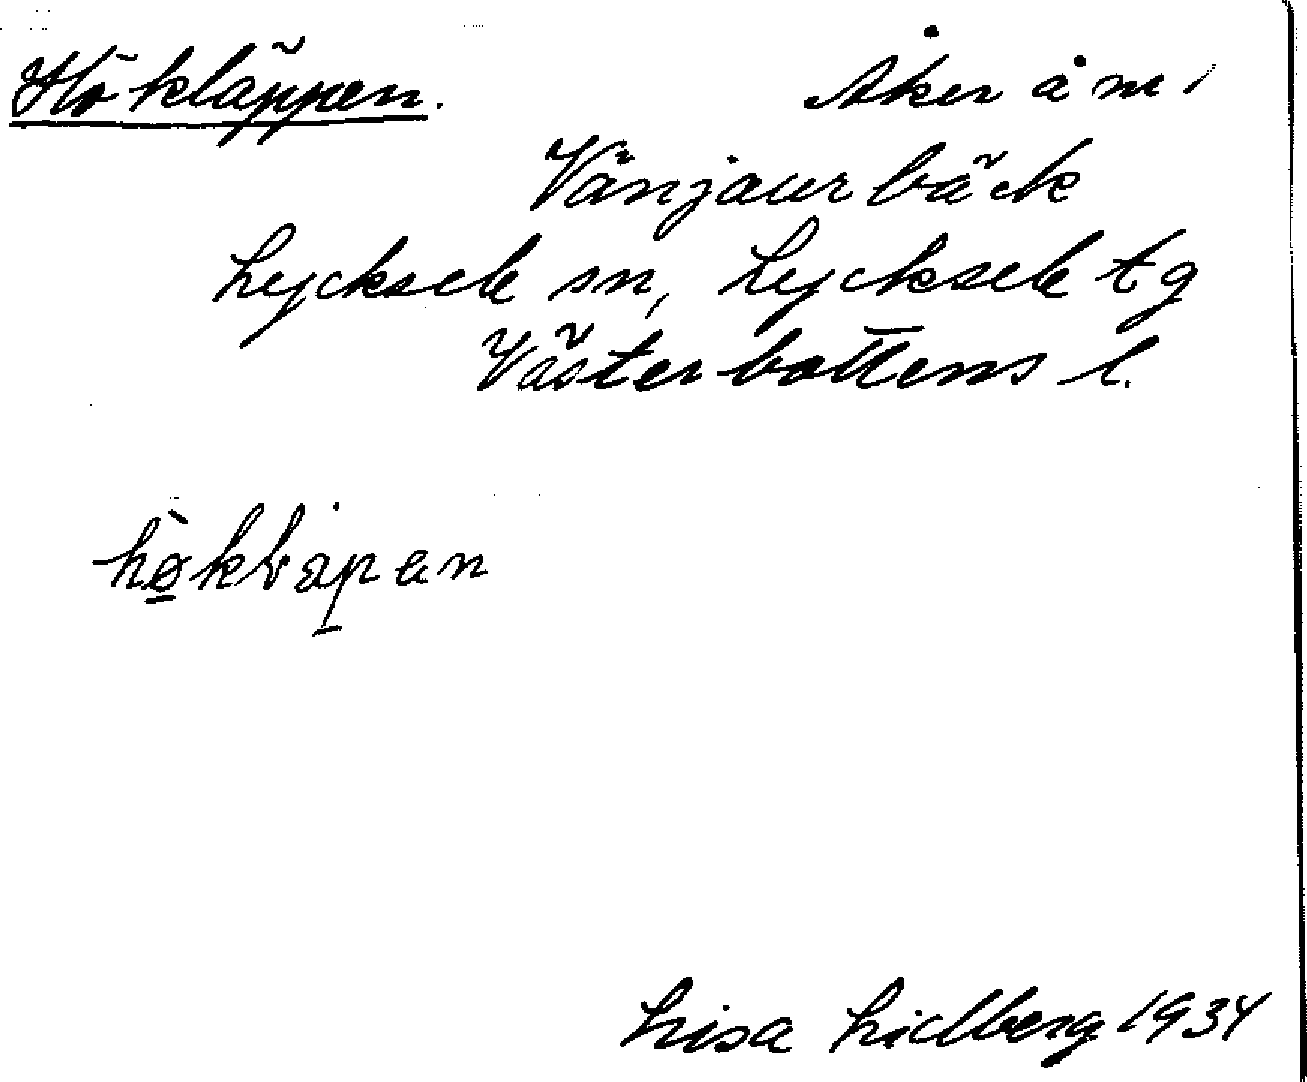 Hökläppen. Åker å m,
Vänjaurbäck
Lycksele sn, Lycksele tg
Västerbottens l.
Lisa Lidberg 1934